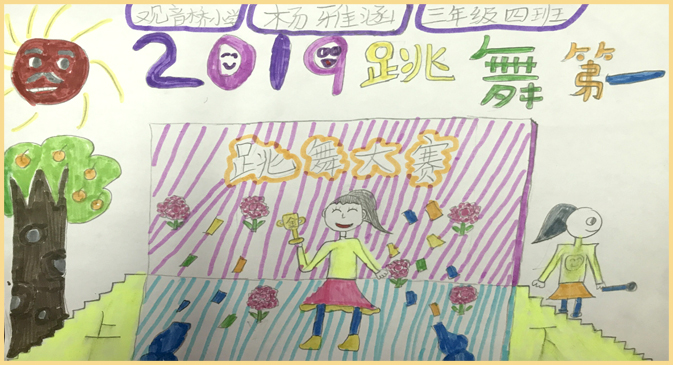 观音林小学 杨雅涵 三年级四班
2019跳舞第一
跳舞大赛
上 下